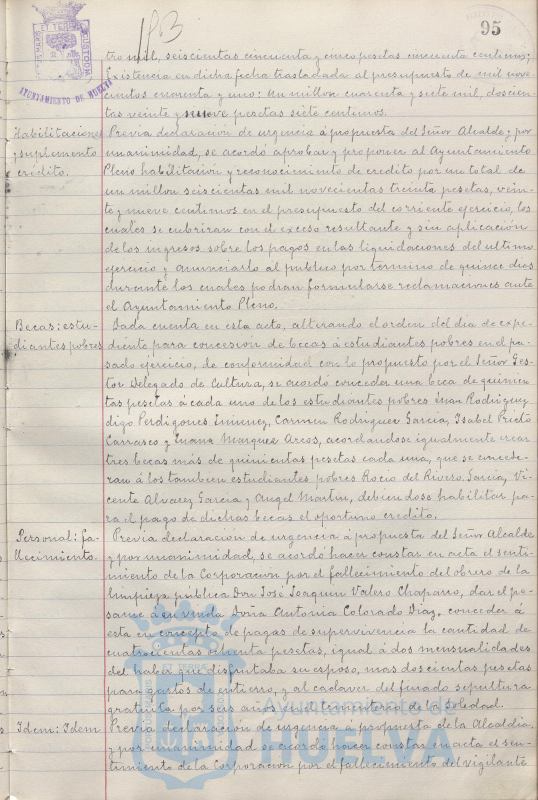 95
AYUNTAMIENTO DE HUELVA
tro mil, seiscientas cincuenta y cinco pesetas cincuenta centimos;
Existencia en dicha fecha trasladada al presupuesto de mil nove
cientos cuarenta y uno: Un millon cuarenta y siete mil, doscien
tas veinte y nueve pesetas siete centimos.
Habilitaciones
y suplemento
crédito.
Previa declaracion de urgencia á propuesta del Señor Alcalde y por
unanimidad, se acordó aprobar y proponer al Ayuntamiento
Pleno habilitacion y reconocimiento de credito por un total de
un millon seiscientas mil novecientas treinta pesetas, vein-
te y nueve centimos en el presupuesto del corriente ejercicio, los
cuales se cubriran con el exceso resultante y sin aplicación
de los ingresos sobre los pagos en las liquidaciones del ultimo
ejercicio y anunciarlo al publico por termino de quince dias
durante los cuales podran formularse reclamaciones ante
el Ayuntamiento Pleno.
Becas: estu-
diantes pobres
Dada cuenta en este acto, alterando el orden del dia de expe-
diente para concesion de becas á estudiantes pobres en el pa-
sado ejercicio, de conformidad con lo propuesto por el Señor Ges-
tor Delegado de Cultura, se acordó conceder una beca de quinien-
tas pesetas á cada uno de los estudiantes pobres Juan Rodriguez
digo Perdigones Jimenez, Carmen Rodriguez Garcia, Isabel Prieto
Carrasco y Juana Marquez Arcos, acordandose igualmente crear
tres becas más de quinientas pesetas cada una, que se concede-
ran á los tambien estudiantes pobres Rocio del Rivero Garcia, Vi-
cente Alvarez Garcia y Angel Martin, debiendose habilitar pa-
ra el pago de dichas becas el oportuno credito.
Personal: fa-
llecimiento.
Previa declaración de urgencia á propuesta del Señor Alcalde
y por unanimidad, se acordó hacer constar en acta el senti-
miento de la Corporacion por el fallecimiento del obrero de la
limpieza pública Don José Joaquin Valero Chaparro, dar el pe-
same á su viuda Doña Antonia Colorado Diaz, conceder á
esta en concepto de pagas de supervivencia la cantidad de
cuatrocientas ochenta pesetas, igual á dos mensualidades
del haber que disfrutaba su esposo, mas doscientas pesetas
para gastos de entierro, y al cadaver del finado sepultura
gratuita por seis años en el cementerio de la Soledad.
Idem: Idem
Previa declaración de urgencia á propuesta de la Alcaldia,
y por unanimidad se acordó hacer constar en acta el sen-
timiento de la Corporacion por el fallecimiento del vigilante
Ayuntamiento de
HUELVA